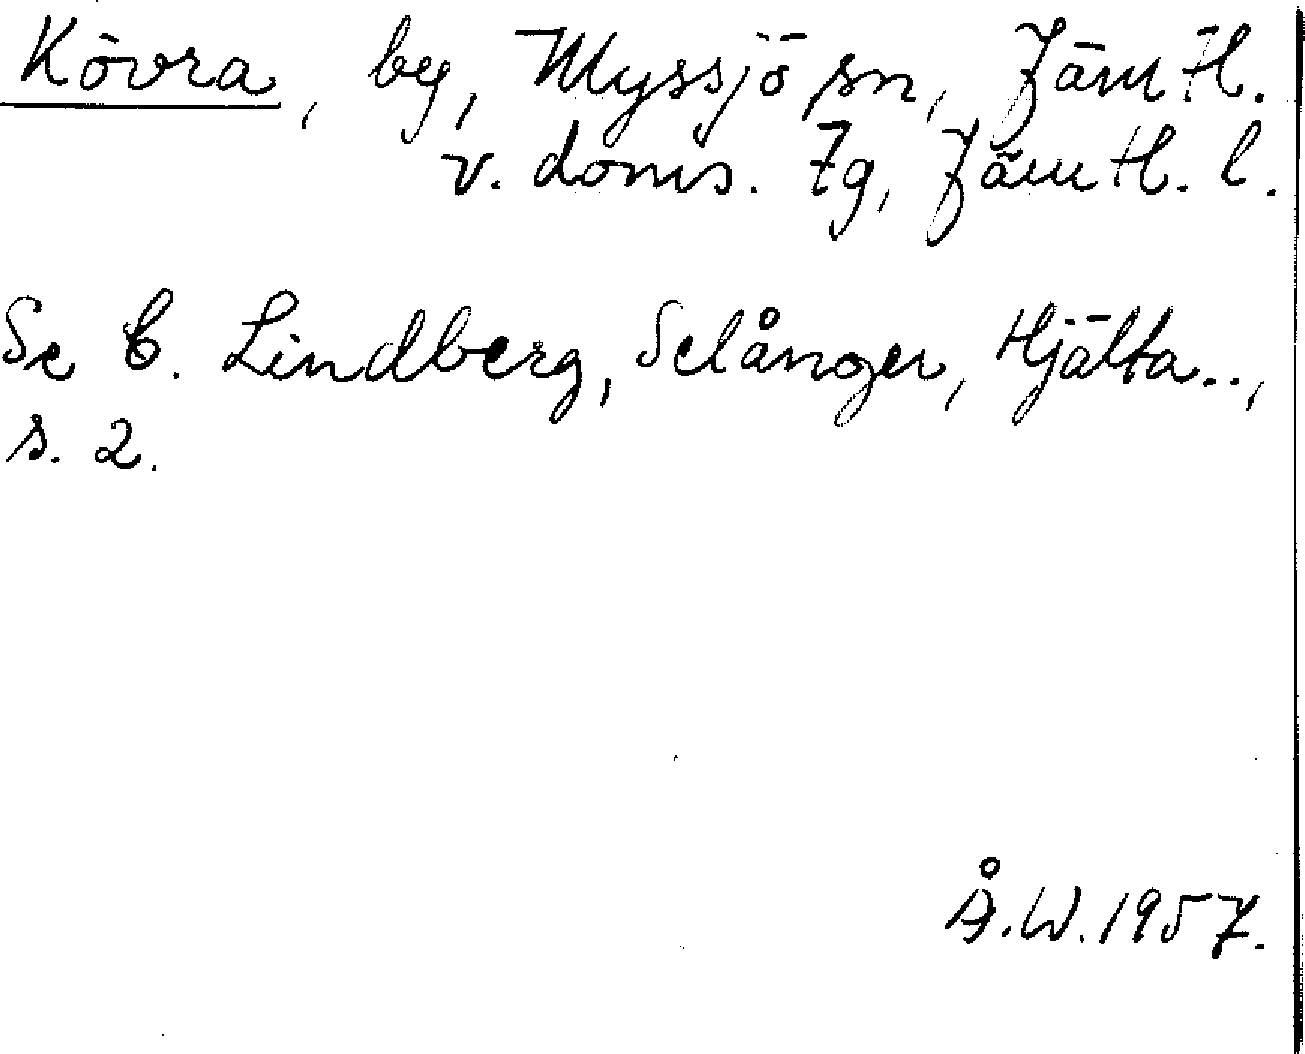 Kövra, by, Myssjö sn, Jämtl.
v. doms. Tg, Jämtl. l.
Se C. Lindberg, Selånger, Hjälta..,
s. 2.
Å.W. 1957.